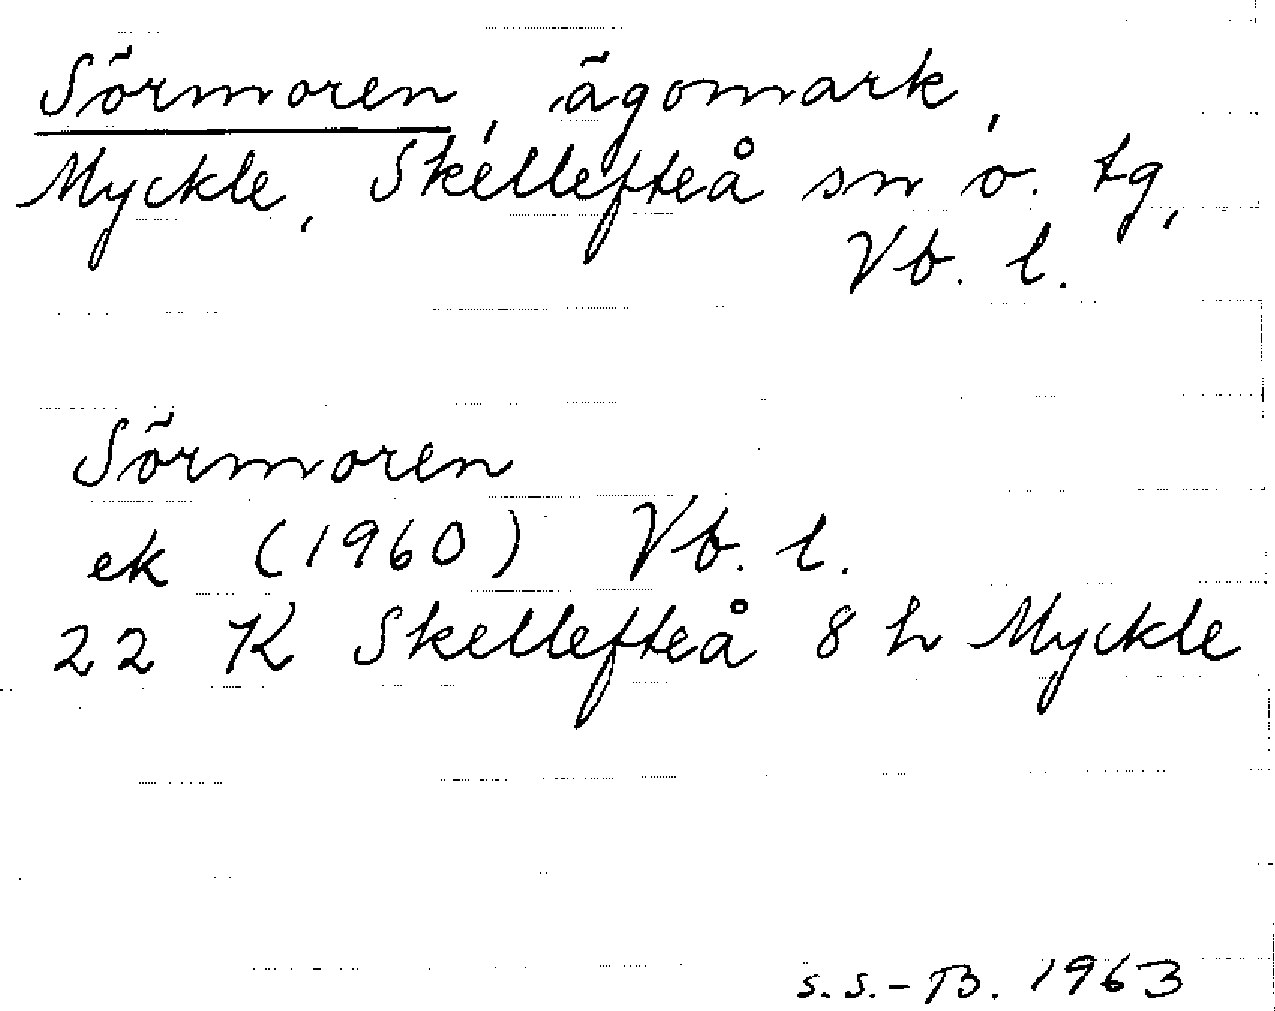 Sörmoren, ägomark,
Myckle, Skellefteå sn o. tg,
Vb. l.
Sörmoren
ek (1960) Vb. l.
22 K Skellefteå 8 h Myckle
S.S.-B. 1963